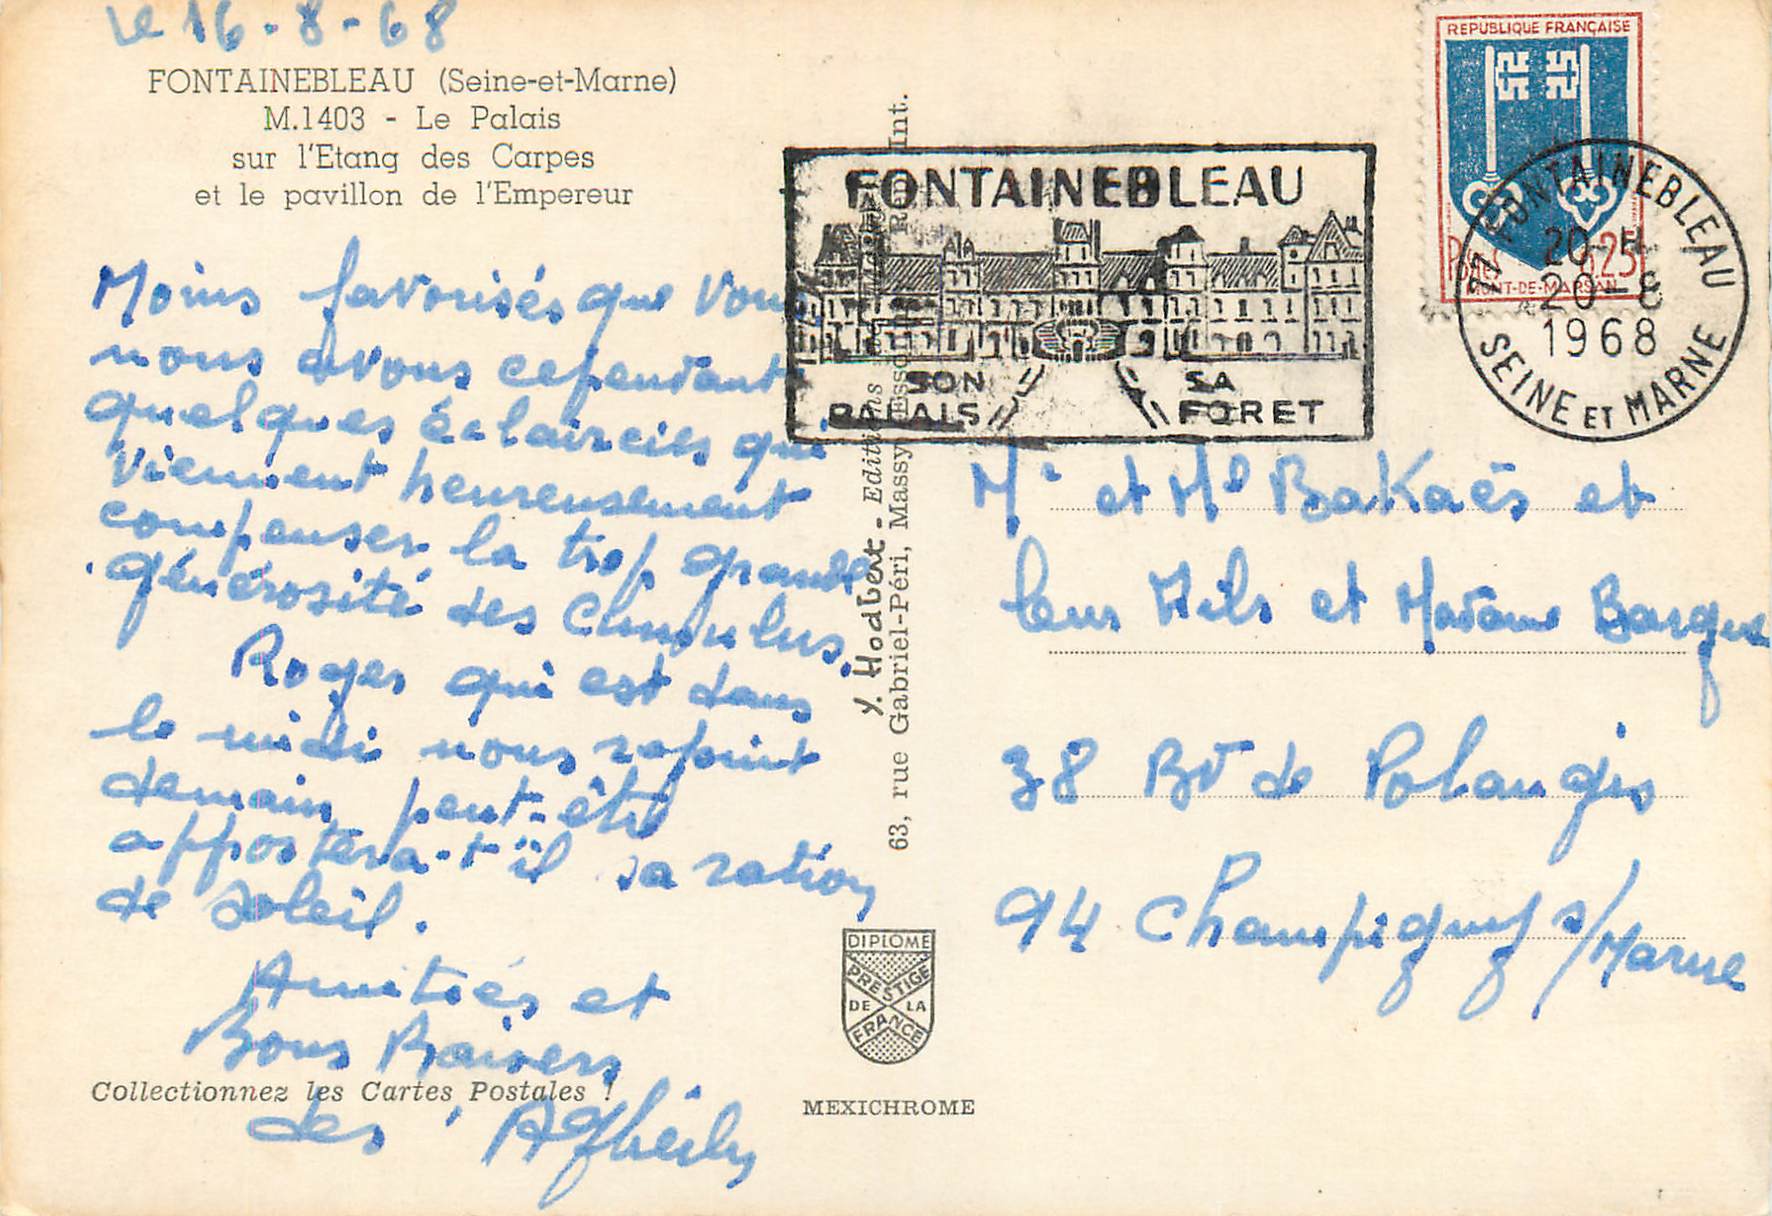 Le 16-8-68
FONTAINEBLEAU (Seine-et-Marne)
M.1403 - Le Palais
sur l'Etang des Carpes
et le pavillon de l'Empereur
Moins favorisés que Vous,
nous avons cependant
quelques éclaircies qui
Viennent heureusement
compenser la trop grande
générosité des Cumulus.
Roger qui est dans
le midi nous rejoint
demain peut-être
apportera-t'il sa ration
de soleil.
Amitiés et
Bons Baisers
des
Collectionnez les Cartes Postales !
Y. Hodbert - Editions
63, rue Gabriel-Péri, Massy Int.
DIPLOME
PRESTIGE
DE LA
FRANCE
MEXICHROME
FONTAINEBLEAU
SON PALAIS
SA FORET
REPUBLIQUE FRANÇAISE
Postes 0.25
MONT-DE-MARSAN
77 FONTAINEBLEAU
20-8
1968
SEINE ET MARNE
Mr et Me BaKaës et
leur Fils et Madame Barque
38 Bd de Polangis
94 Champigny s/Marne